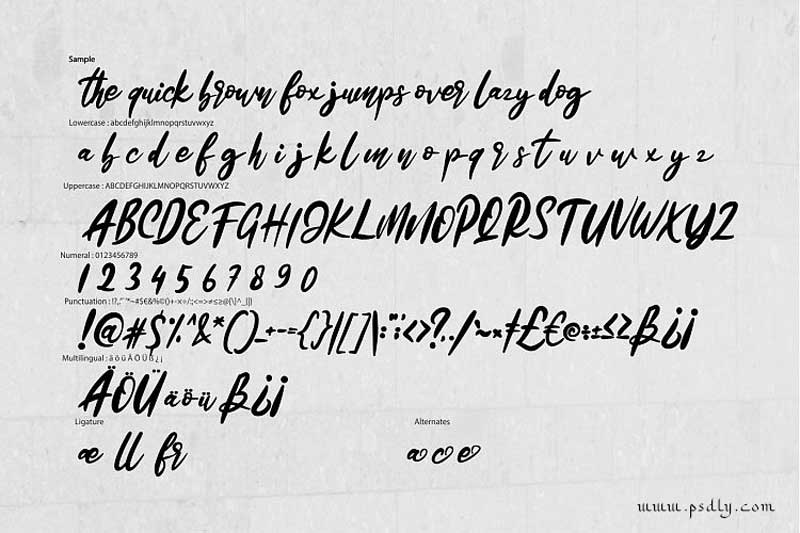 Sample
the quick brown fox jumps over lazy dog
Lowercase : abcdefghijklmnopqrstuvwxyz
a b c d e f g h i j k l m n o p q r s t u v w x y z
Uppercase : ABCDEFGHIJKLMNOPQRSTUVWXYZ
ABCDEFGHIJKLMNOPQRSTUVWXYZ
Numeral : 0123456789
1 2 3 4 5 6 7 8 9 0
Multilingual : ä ö ü Ä Ö Ü ß ¿ ¡
ÄÖÜ äöü ß¿¡
Ligature
Alternates
æ ll fr
a c e
www.psdly.com